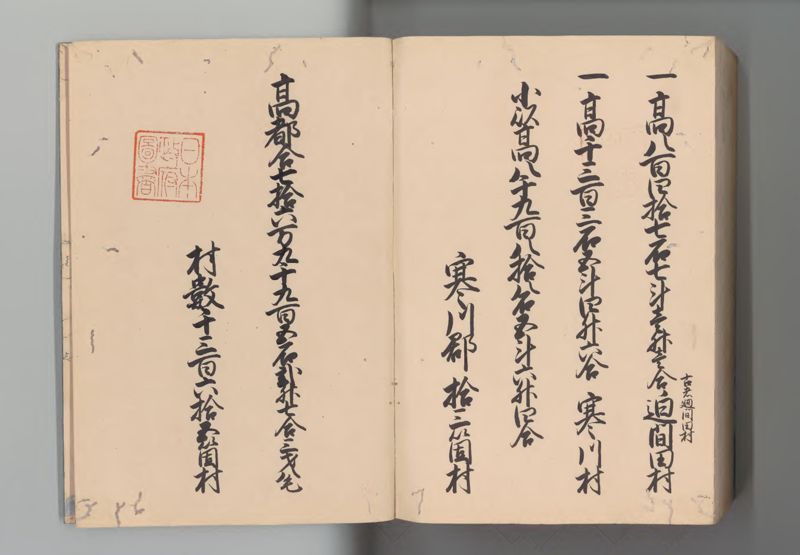 一 高八百四拾七石七斗壱升壱合 迫間田村
古者廻間田村
一 高千三百三石五斗四升六合 寒川村
小以高八千九百八拾八石五斗六升四合
寒川郡 拾三箇村
高都合七拾六万九千九百五石弐升七合三夕
村数千三百六拾五箇村
日本
政府
圖書